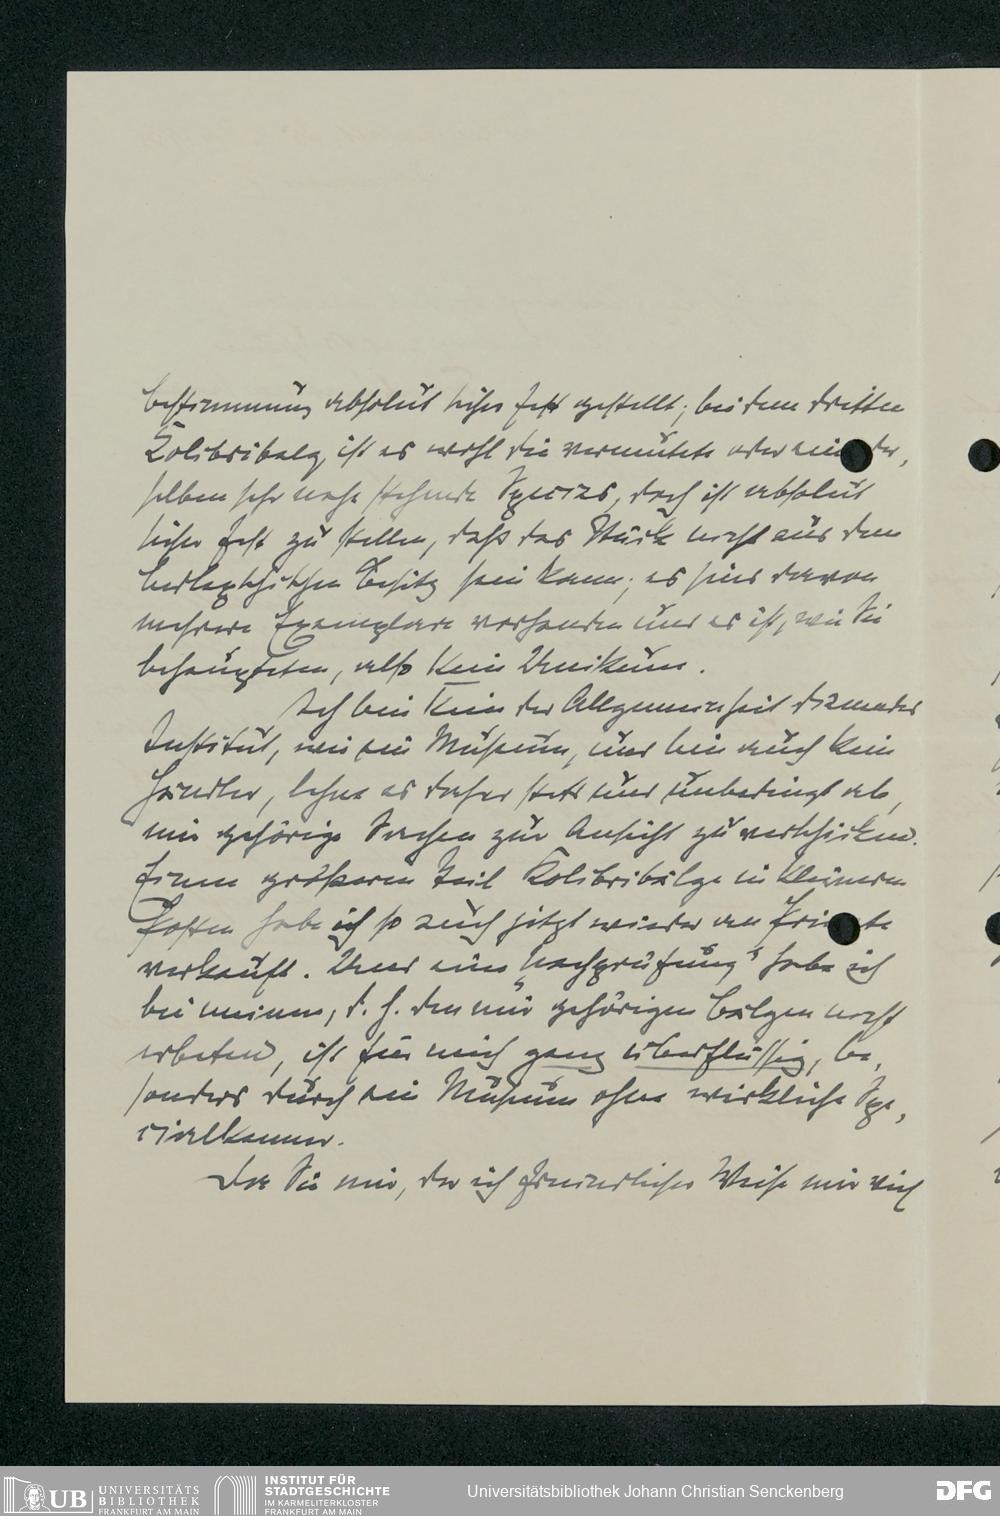 bestimmung absolut sicher fest gestellt; bei dem dritten
Kolibribalg ist es wohl die vermutete oder eine der,
selben sehr nahe stehende Species, doch ist absolut
sicher fest zu stellen, daß das Stück nicht aus dem
Berlepschschen Besitz sein kann; es sind davon
mehrere Exemplare vorhanden und es ist, wie Sie
behaupteten, also kein Unikum.
Ich bin kein der Allgemeinheit dienendes
Institut, wie ein Museum, und bin auch kein
Händler, lehne es daher stets und unbedingt ab,
mir gehörige Sachen zur Ansicht zu verschicken.
Einen größeren Teil Kolibribälge in kleineren
Posten habe ich so auch jetzt wieder an Private
verkauft. Und eine „Nachprüfung" habe ich
bei meinen, d. h. den mir gehörigen Bälgen nicht
erbeten, ist für mich ganz überflüssig, be,
sonders durch ein Museum ohne wirkliche Spe,
cialkenner.
Da Sie mir, der ich freundlicher Weise mir
UB UNIVERSITÄTS
BIBLIOTHEK
FRANKFURT AM MAIN
INSTITUT FÜR
STADTGESCHICHTE
IM KARMELITERKLOSTER
FRANKFURT AM MAIN
Universitätsbibliothek Johann Christian Senckenberg
DFG